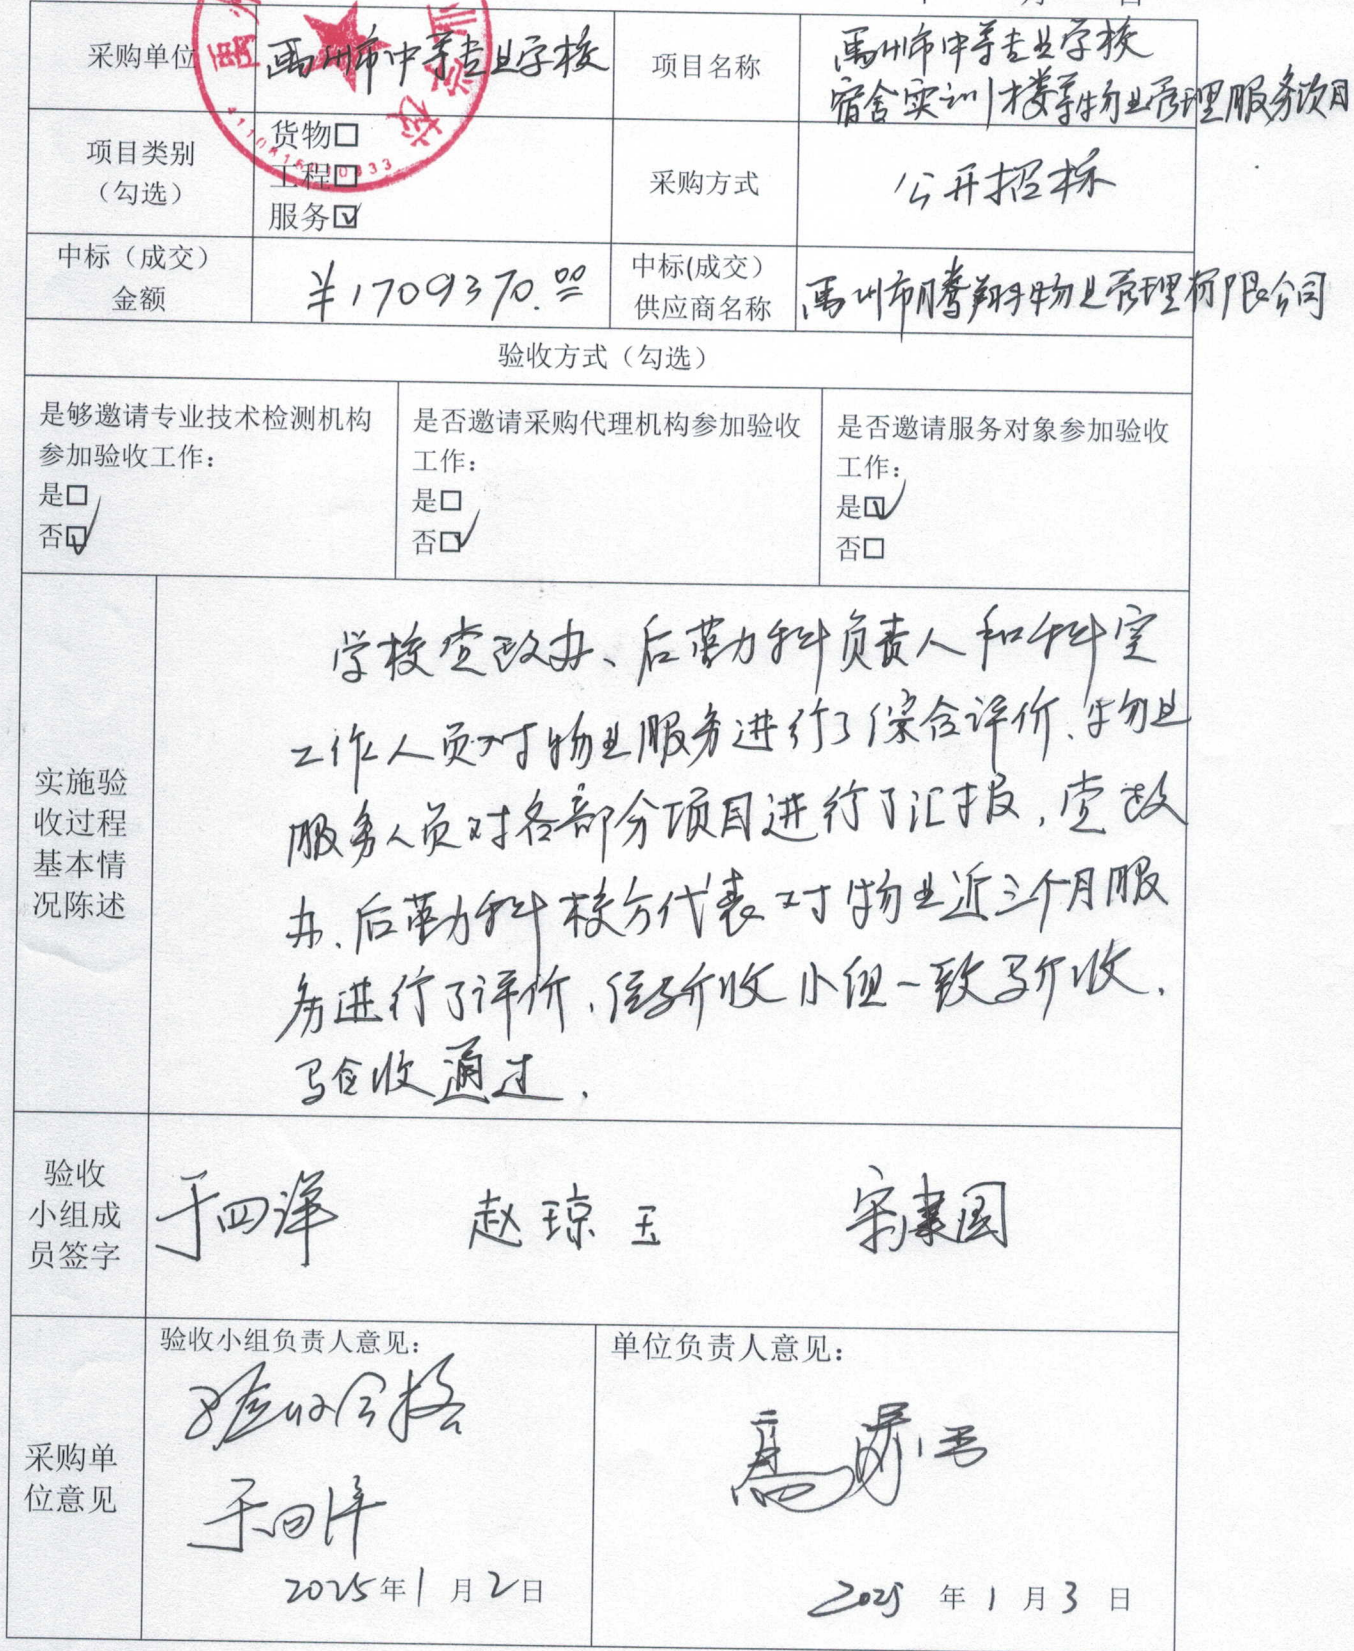 采购单位
禹州市中等专业学校
项目名称
禹州市中等专业学校
宿舍实训楼等物业管理服务项目
项目类别
（勾选）
货物□
工程□
服务☑
采购方式
公开招标
中标（成交）
金额
¥1709370.00
中标(成交）
供应商名称
禹州市腾翔物业管理有限公司
验收方式（勾选）
是够邀请专业技术检测机构
参加验收工作：
是□
否☑
是否邀请采购代理机构参加验收
工作：
是□
否☑
是否邀请服务对象参加验收
工作：
是☑
否□
实施验
收过程
基本情
况陈述
学校党政办、后勤科负责人和科室
工作人员对物业服务进行了综合评价、物业
服务人员对各部分项目进行了汇报，党政
办、后勤科校方代表对物业近三个月服
务进行了评价，经验收小组一致验收，
验收通过．
验收
小组成
员签字
于四洋 赵琼玉 宋建国
采购单
位意见
验收小组负责人意见：
验收合格
于四洋
2025年1月2日
单位负责人意见：
2025年1月3日
4110816010333